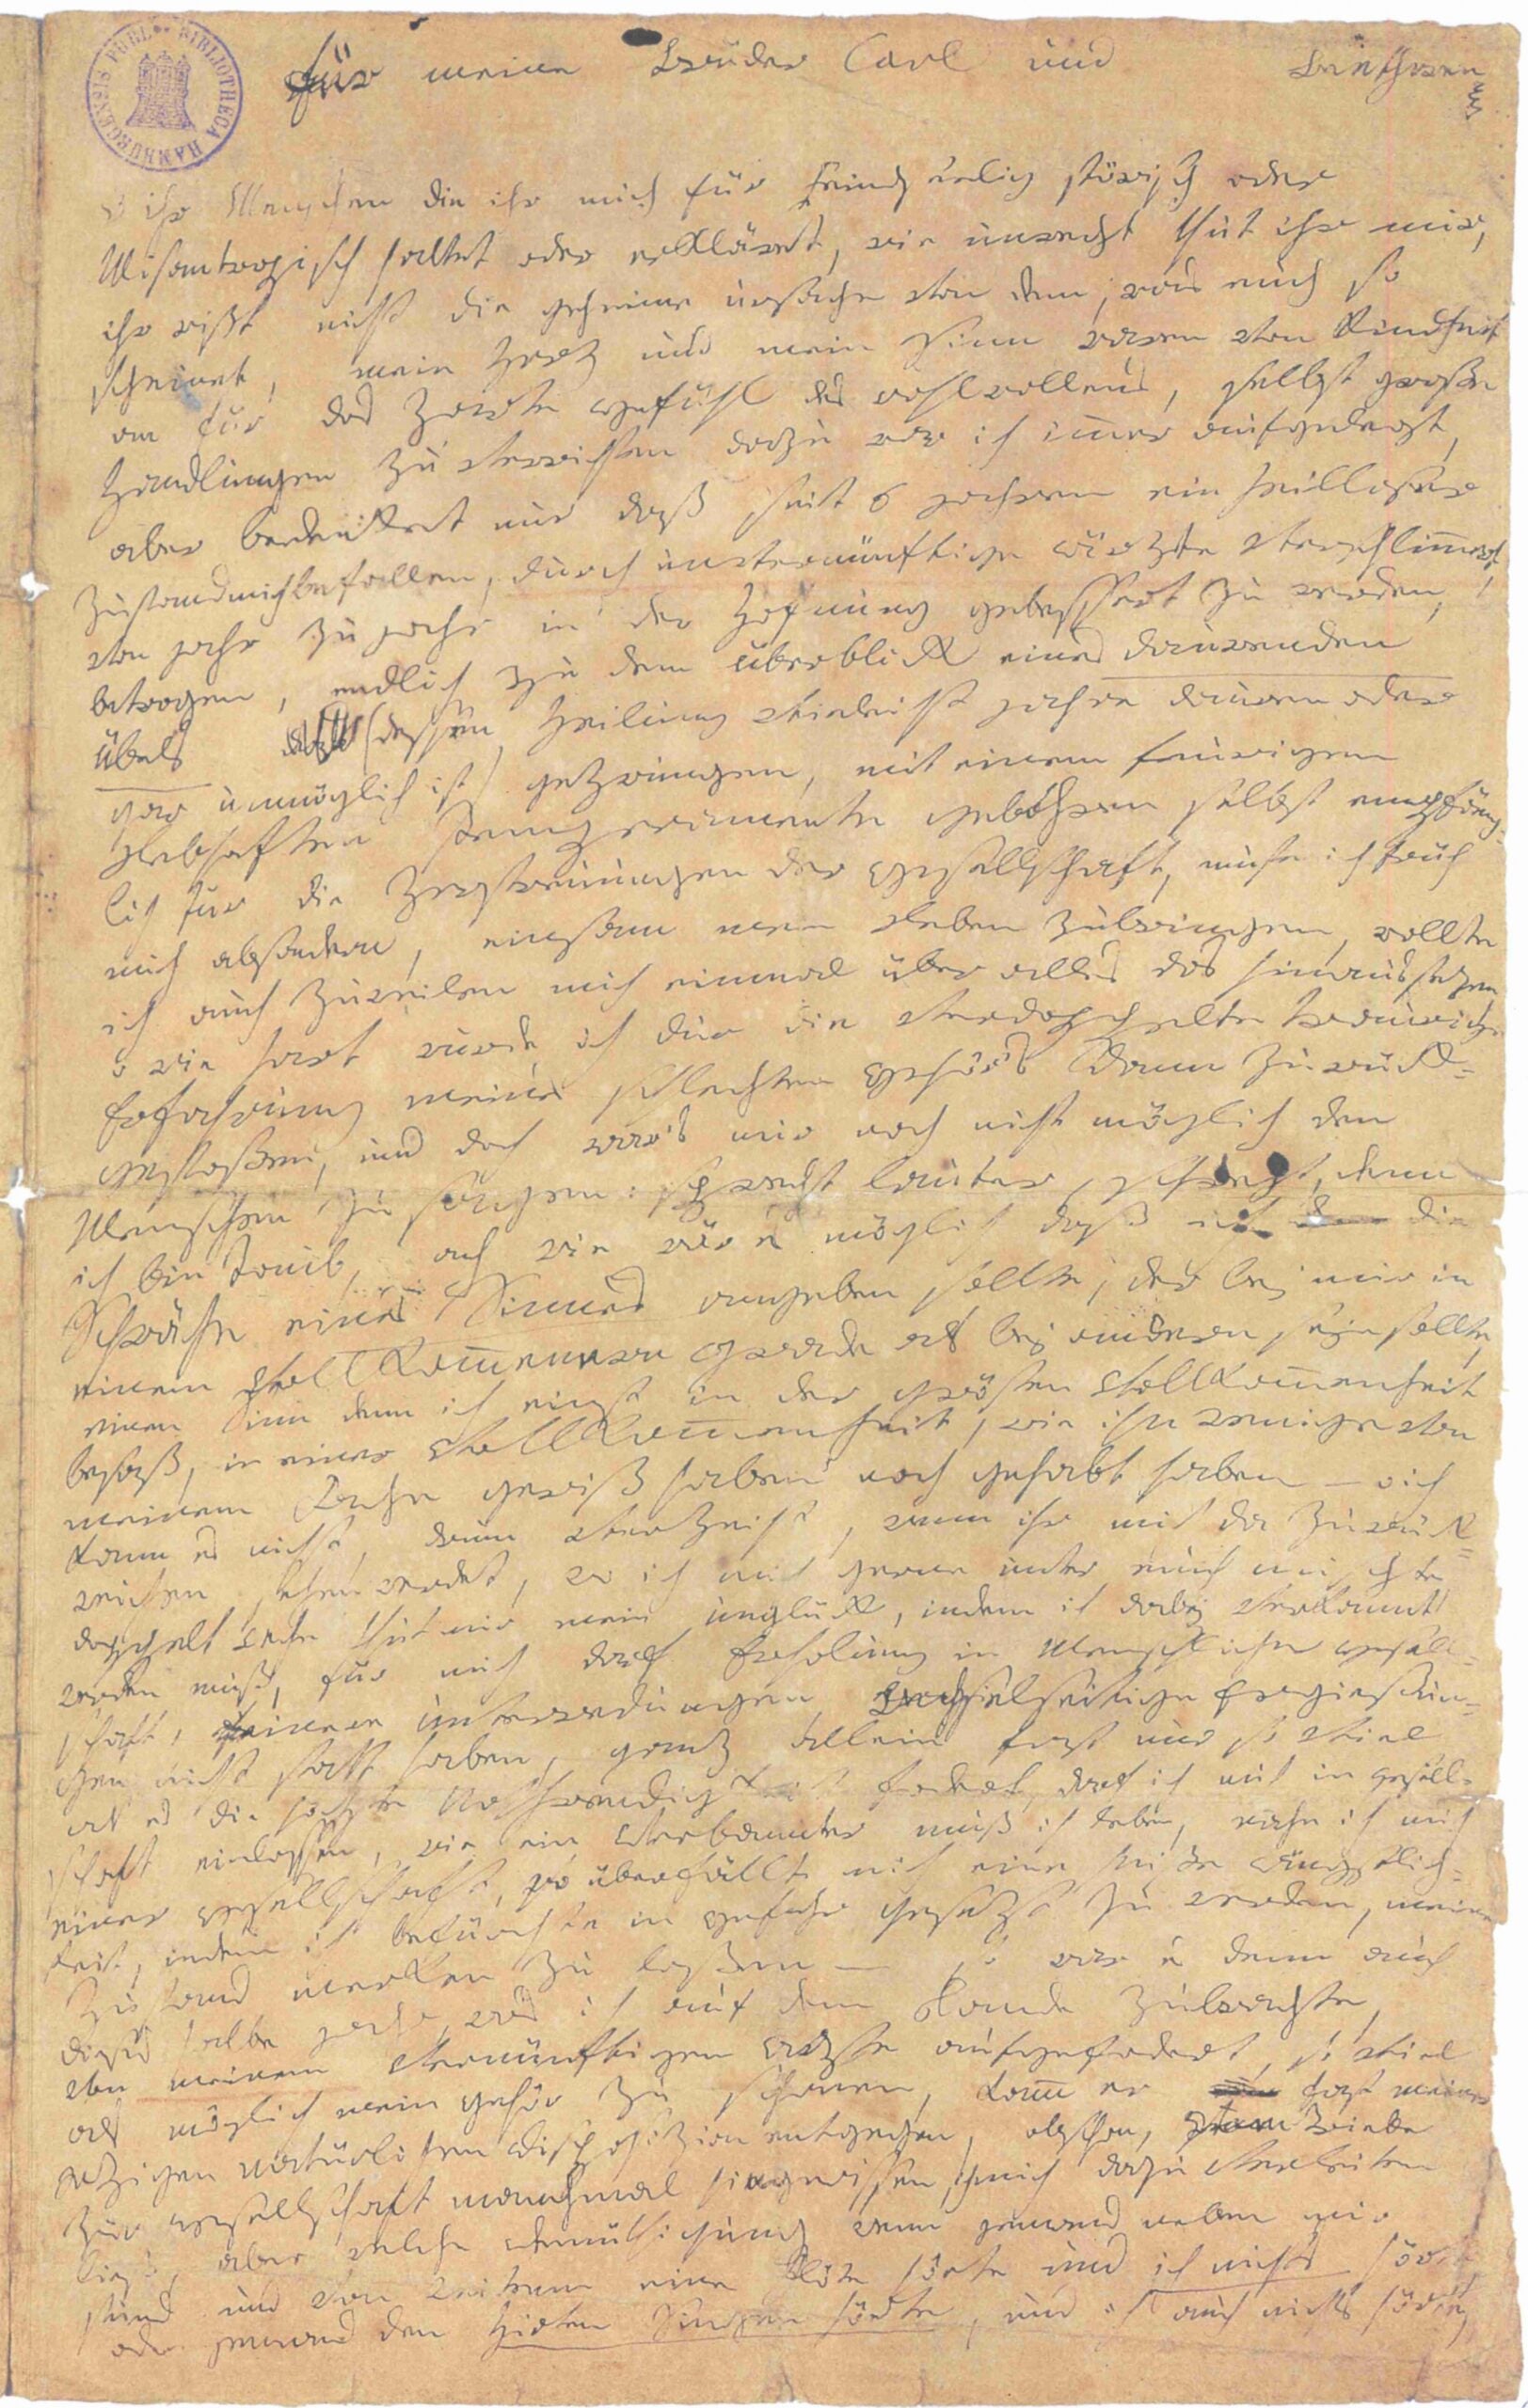 BIBLIOTHECA PUBL. HAMBURGENSIS
für meine Brüder Carl und Beethowen
o ihr Menschen die ihr mich für Feindseelig störisch oder
Misantropisch haltet oder erkläret, wie unrecht thut ihr mir,
ihr wißt nicht die geheime ursache von dem, was euch so
scheinet, mein Herz und mein Sinn waren von Kindheit
an für das Zarte Gefühl des wohlwollens, selbst große
Handlungen zu verrichten dazu war ich immer aufgelegt,
aber bedenket nur daß seit 6 jahren ein heilloser
Zustand mich befallen, durch unvernünftige ärzte verschlimmert,
von jahr zu jahr in der Hofnung gebessert zu werden,
betrogen, endlich zu dem überblick eines daurenden
Übels (dessen Heilung vieleicht jahre dauren oder
gar unmöglich ist) gezwungen, mit einem feurigem
Lebhaften Temperamente gebohren selbst empfäng-
lich für die Zerstreuungen der Gesellschaft, muste ich früh
mich absondern, einsam mein Leben zubringen, wollte
ich auch zuweilen mich einmal über alles das hinaussezen,
o wie hart wurde ich dur die verdoppelte traurige
Erfahrung meines schlechten Gehör's dann zurück-
gestoßen, und doch war's mir noch nicht möglich den
Menschen zu sagen: sprecht lauter, schreyt, denn
ich bin Taub, ach wie wär es möglich daß ich die
Schwäche eines Sinnes angeben sollte; der bey mir in
einem Vollkommenern Grade als bey andern seyn sollte,
einen Sinn denn ich einst in der grösten Vollkommenheit
besaß, in einer Vollkommenheit, wie ihn wenige von
meinem Fache gewiß haben noch gehabt haben – o ich
kann es nicht, drum verzeiht, wenn ihr mich da zurück-
weichen sehen werdet, wo ich mich gerne unter euch mischte
doppelt wehe thut mir mein unglück, indem ich dabey verkannt
werden muß, für mich darf Erholung in Menschlicher Gesell-
schaft, feinere unterredungen, wechselseitige Ergießun-
gen nicht statt haben, ganz allein fast nur so viel
als es die höchste Nothwendigkeit fodert, darf ich mich in gesell-
schaft einlassen, wie ein Verbannter muß ich leben, nahe ich mich
einer Gesellschaft, so überfällt mich eine heiße ängstlich-
keit, indem ich befürchte in Gefahr gesezt zu werden, meinen
Zustand merken zu laßen – so war es denn auch
dieses halbe jahr, was ich auf dem Lande zubrachte,
von meinem vernünftigen Arzte aufgefodert, so viel
als möglich mein Gehör zu schonen, kamm er fast meiner
jezigen natürlichen Disposizion entgegen, obschon, vom Triebe
zur Gesellschaft manchmal hingerissen, ich mich dazu verleiten
ließ, aber welche Demüthigung wenn jemand neben mir
stund und von weitem eine Flöte hörte und ich nichts hörte,
oder jemand den Hirten Singen hörte, und ich auch nichts hörte,